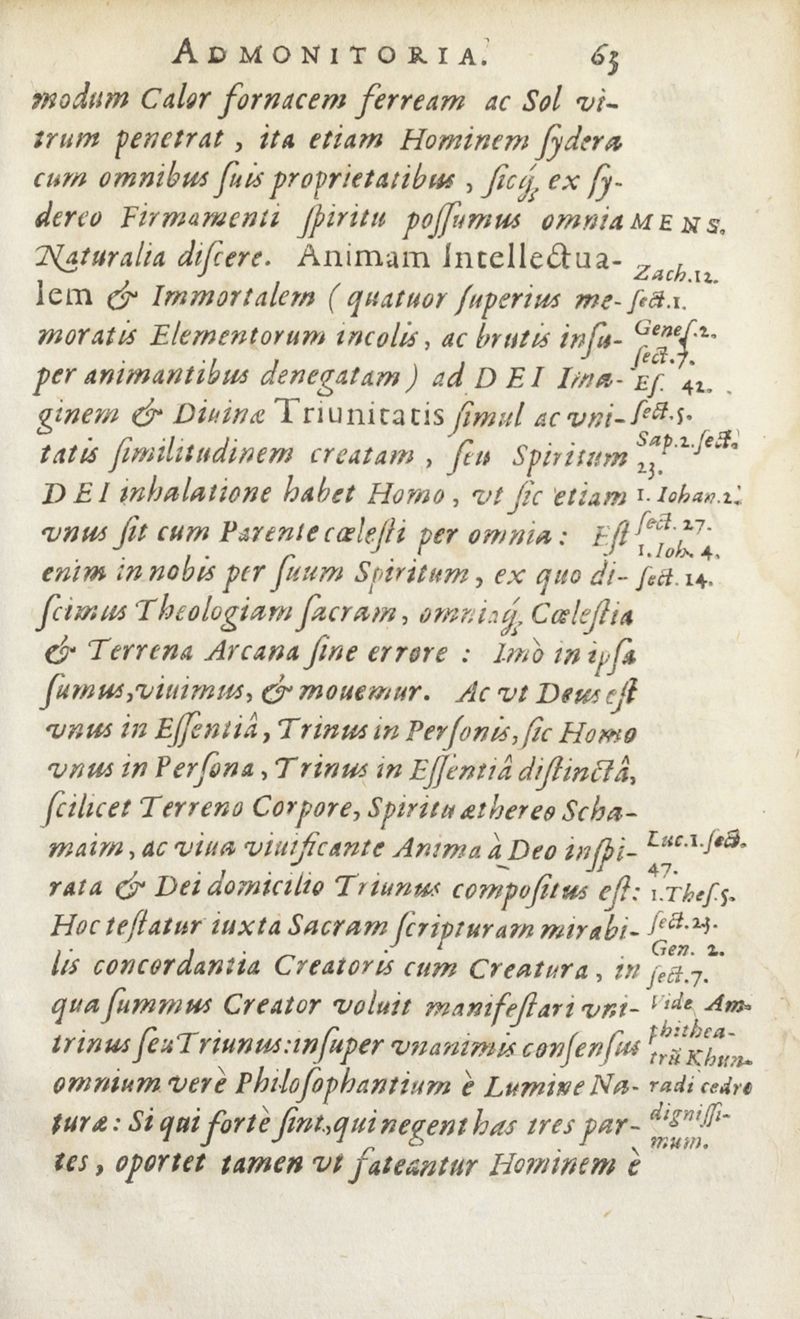 ADMONITORIA. 63
modum Calor fornacem ferream ac Sol vi-
trum penetrat, ita etiam Hominem ſydera
cum omnibus ſuis proprietatibus, ſicq́ꝫ ex ſy-
dereo Firmamenti ſpiritu poſſumus omnia
Naturalia diſcere. Animam Intellectua-
lem & Immortalem (quatuor ſuperius me-
moratis Elementorum incolis, ac brutis inſu-
per animantibus denegatam) ad DEI Ima-
ginem & Diuinæ Triunitatis ſimul ac vni-
tatis ſimilitudinem creatam, ſeu Spiritum
DEI inhalatione habet Homo, vt ſic etiam
vnus ſit cum Parente cœleſti per omnia: Eſt
enim in nobis per ſuum Spiritum, ex quo di-
ſcimus Theologiam ſacram, omniaq́ꝫ Cœleſtia
& Terrena Arcana ſine errore: Imò in ipſa
ſumus, viuimus, & mouemur. Ac vt Deus eſt
vnus in Eſſentiâ, Trinus in Perſonis, ſic Homo
vnus in Perſona, Trinus in Eſſentiâ diſtinctâ,
ſcilicet Terreno Corpore, Spiritu æthereo Scha-
maim, ac viua viuificante Anima à Deo inſpi-
rata & Dei domicilio Triunus compoſitus eſt:
Hoc teſtatur iuxta Sacram ſcripturam mirabi-
lis concordantia Creatoris cum Creatura, in
qua ſummus Creator voluit manifeſtari vni-
trinus ſeu Triunus: inſuper vnanimis conſenſus
omnium verè Philoſophantium è Lumine Na-
turæ: Si qui fortè ſint, qui negent has tres par-
tes, oportet tamen vt fateantur Hominem è
MENS.
Zach.12.
ſect.1.
Geneſ.2.
ſect.7.
Eſ. 42.
ſect.5.
Sap.2.ſect.
23.
1. Iohan.2.
ſect. 27.
1. Ioh. 4.
ſect. 14.
Luc.1.ſect.
47.
1.Theſ.5.
ſect.23.
Gen. 2.
ſect.7.
Vide Am-
phithea-
trũ Khun-
radi cedro
digniſſi-
mum.